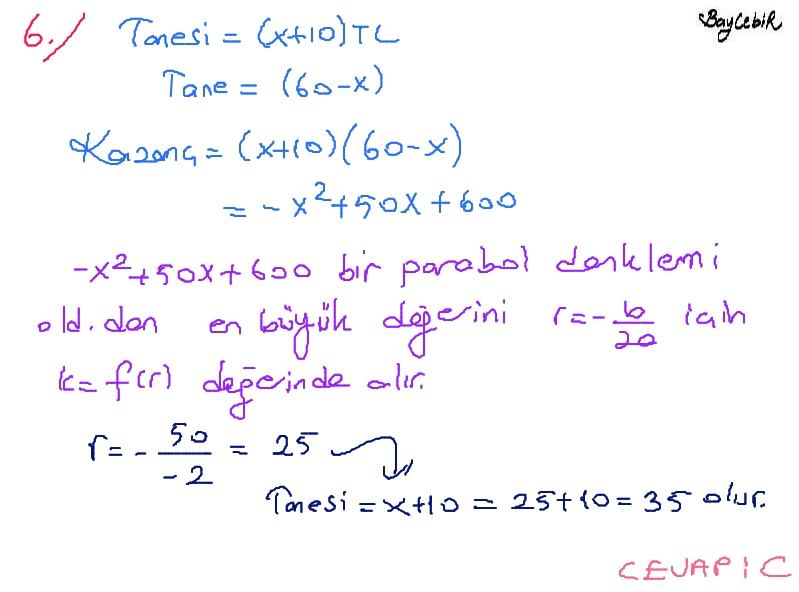 6./ Tanesi = (x+10)TL
BayCebiR
Tane = (60-x)
Kazanç = (x+10)(60-x)
= -x²+50x+600
-x²+50x+600 bir parabol denklemi
old.dan en büyük değerini r=-b/2a için
k=f(r) değerinde alır.
r = - 50/-2 = 25
Tanesi = x+10 = 25+10 = 35 olur.
CEVAP : C